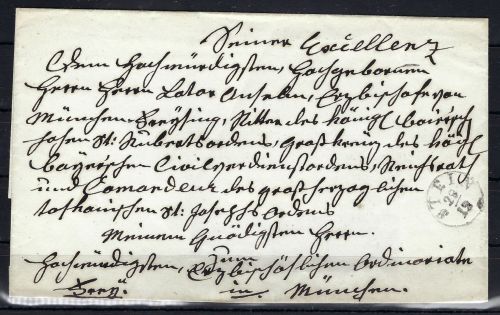 Seiner Excellenz
Dem Hochwürdigsten, Hochgebornen
Herrn Herrn Lotar Anselm, Erzbischofe von
München Freysing, Ritter des königl. bairisch
hohen St. Hubertsordens, Großkreuz des königl.
bayerischen Civilverdienstordens, Reichsrath
und Comandeur des großherzoglichen
toskanischen St. Josephs Ordens
Meinem Gnädigsten Herrn.
zum
Hochwürdigsten, Erzbischöflichen Ordinariate
in München.
STEIN